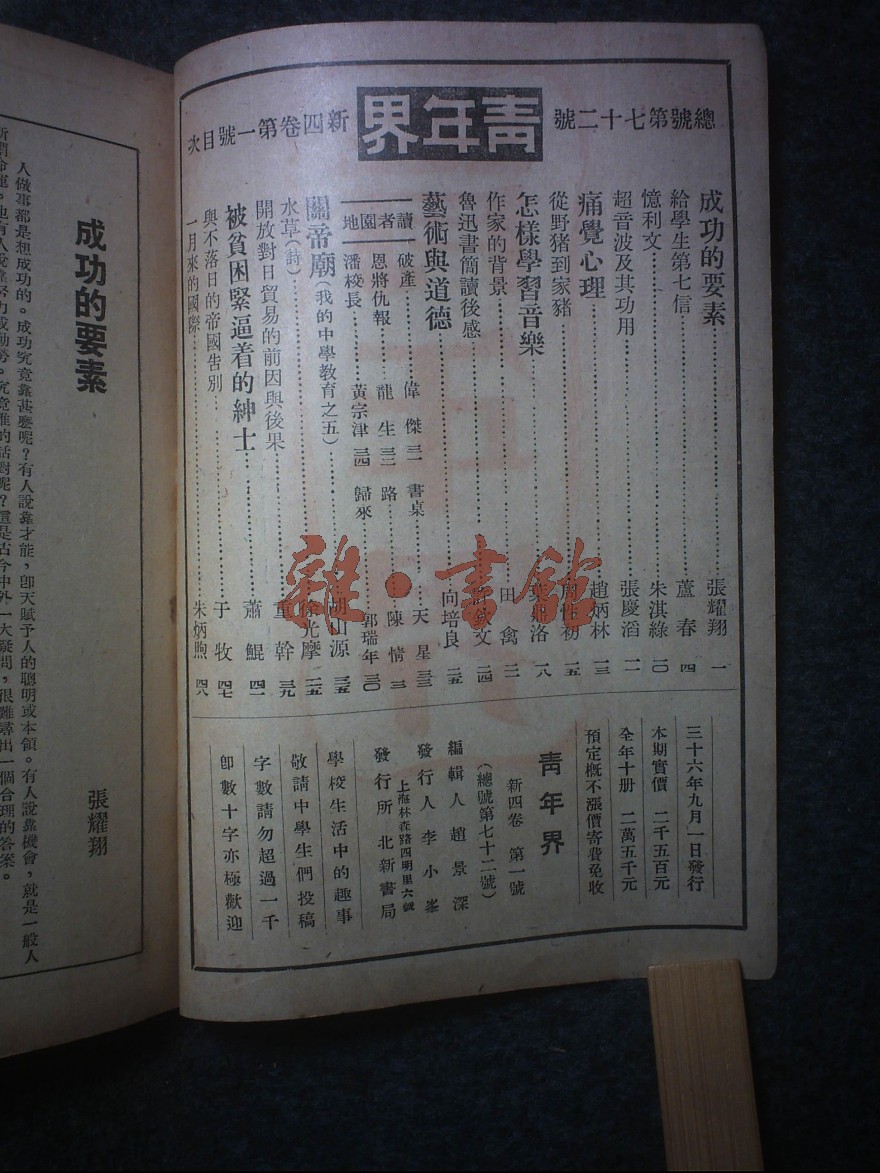 總號第七十二號
青年界
新四卷第一號目次
成功的要素 張耀翔 一
給學生第七信 蘆春 四
憶利文 朱淇綠 一〇
超音波及其功用 張慶滔 一一
痛覺心理 趙炳林 一三
從野猪到家豬 周性初 一五
怎樣學習音樂 葉鼎洛 一八
作家的背景 田禽 二一
魯迅書簡讀後感 許欽文 二四
藝術與道德 向培良 二五
讀者園地
破產 偉傑 三一 書桌 天星 三三
恩將仇報 龍生 三三 路 陳情
潘校長 黃宗津 三四 歸來 郭瑞年 三〇
關帝廟(我的中學教育之五) 胡山源 三五
水草(詩) 徐光摩
開放對日貿易的前因與後果 重幹 三九
被貧困緊逼着的紳士 蕭鯤 四一
與不落日的帝國告別 于牧 四七
一月來的國際 朱炳煦 四八
三十六年九月一日發行
本期實價 二千五百元
全年十册 二萬五千元
預定概不漲價寄費免收
青年界
新四卷 第一號
(總號第七十二號)
編輯人 趙景深
發行人 李小峯
上海林森路四明里六號
發行所 北新書局
學校生活中的趣事
敬請中學生們投稿
字數請勿超過一千
即數十字亦極歡迎
雜·書館
成功的要素
張耀翔
人做事都是想成功的。成功究竟靠甚麼呢?有人說靠才能,卽天賦予人的聰明或本領。有人說靠機會,就是一般人
所謂命運。也有人說靠努力或勤勞。究竟誰的話對呢?這是古今中外一大疑問,很難尋出一個合理的答案。